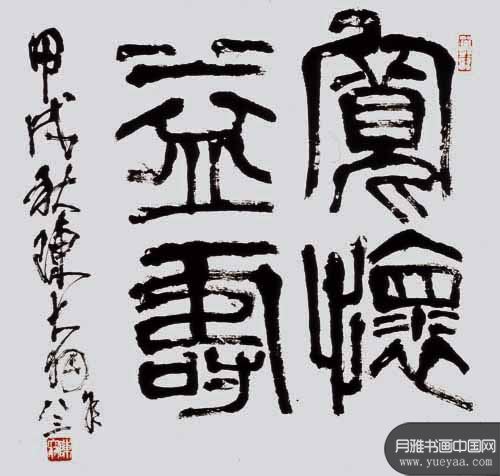 寬懷
益壽
甲戌秋陳大羽年八三
月雅书画中国网
www.yueyaa.com